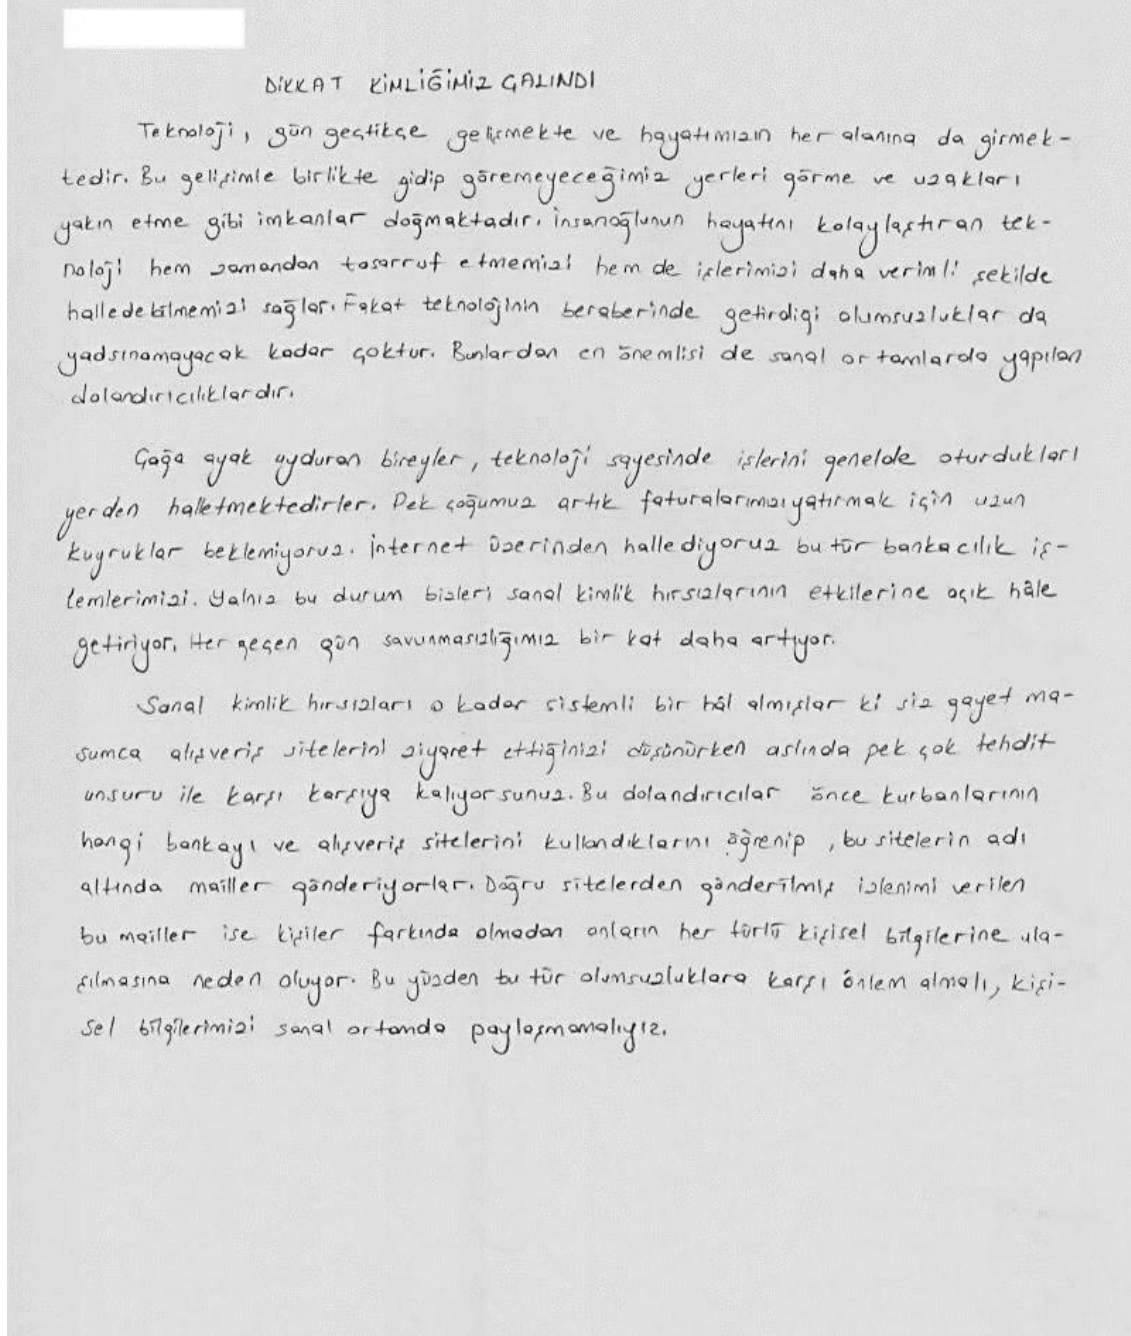 DİKKAT KİMLİĞİMİZ ÇALINDI
Teknoloji, gün geçtikçe gelişmekte ve hayatımızın her alanına da girmek-
tedir. Bu gelişimle birlikte gidip göremeyeceğimiz yerleri görme ve uzakları
yakın etme gibi imkanlar doğmaktadır. İnsanoğlunun hayatını kolaylaştıran tek-
noloji hem zamandan tasarruf etmemizi hem de işlerimizi daha verimli şekilde
halledebilmemizi sağlar. Fakat teknolojinin beraberinde getirdiği olumsuzluklar da
yadsınamayacak kadar çoktur. Bunlardan en önemlisi de sanal ortamlarda yapılan
dolandırıcılıklardır.
Çağa ayak uyduran bireyler, teknoloji sayesinde işlerini genelde oturdukları
yerden halletmektedirler. Pek çoğumuz artık faturalarımızı yatırmak için uzun
kuyruklar beklemiyoruz. İnternet üzerinden hallediyoruz bu tür bankacılık iş-
lemlerimizi. Yalnız bu durum bizleri sanal kimlik hırsızlarının etkilerine açık hâle
getiriyor. Her geçen gün savunmasızlığımız bir kat daha artıyor.
Sanal kimlik hırsızları o kadar sistemli bir hâl almışlar ki siz gayet ma-
sumca alışveriş sitelerini ziyaret ettiğinizi düşünürken aslında pek çok tehdit
unsuru ile karşı karşıya kalıyorsunuz. Bu dolandırıcılar önce kurbanlarının
hangi bankayı ve alışveriş sitelerini kullandıklarını öğrenip, bu sitelerin adı
altında mailler gönderiyorlar. Doğru sitelerden gönderilmiş izlenimi verilen
bu mailler ise kişiler farkında olmadan onların her türlü kişisel bilgilerine ula-
şılmasına neden oluyor. Bu yüzden bu tür olumsuzluklara karşı önlem almalı, kişi-
sel bilgilerimizi sanal ortamda paylaşmamalıyız.